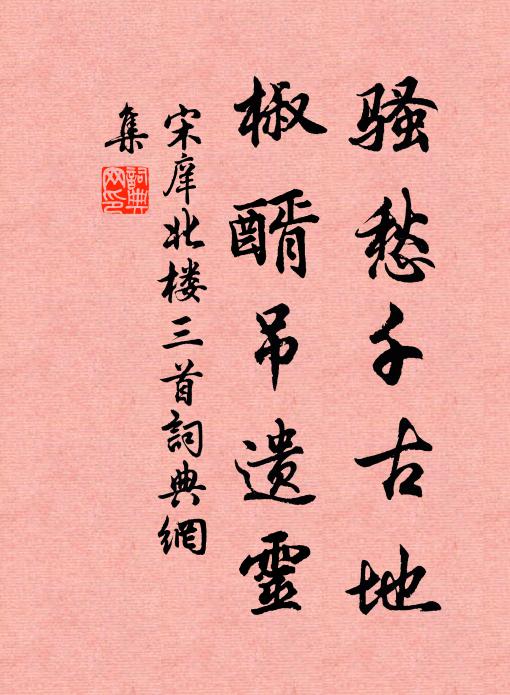 骚愁千古地
椒醑吊遗靈
宋庠北楼三首詞典網
集
詞典
网印